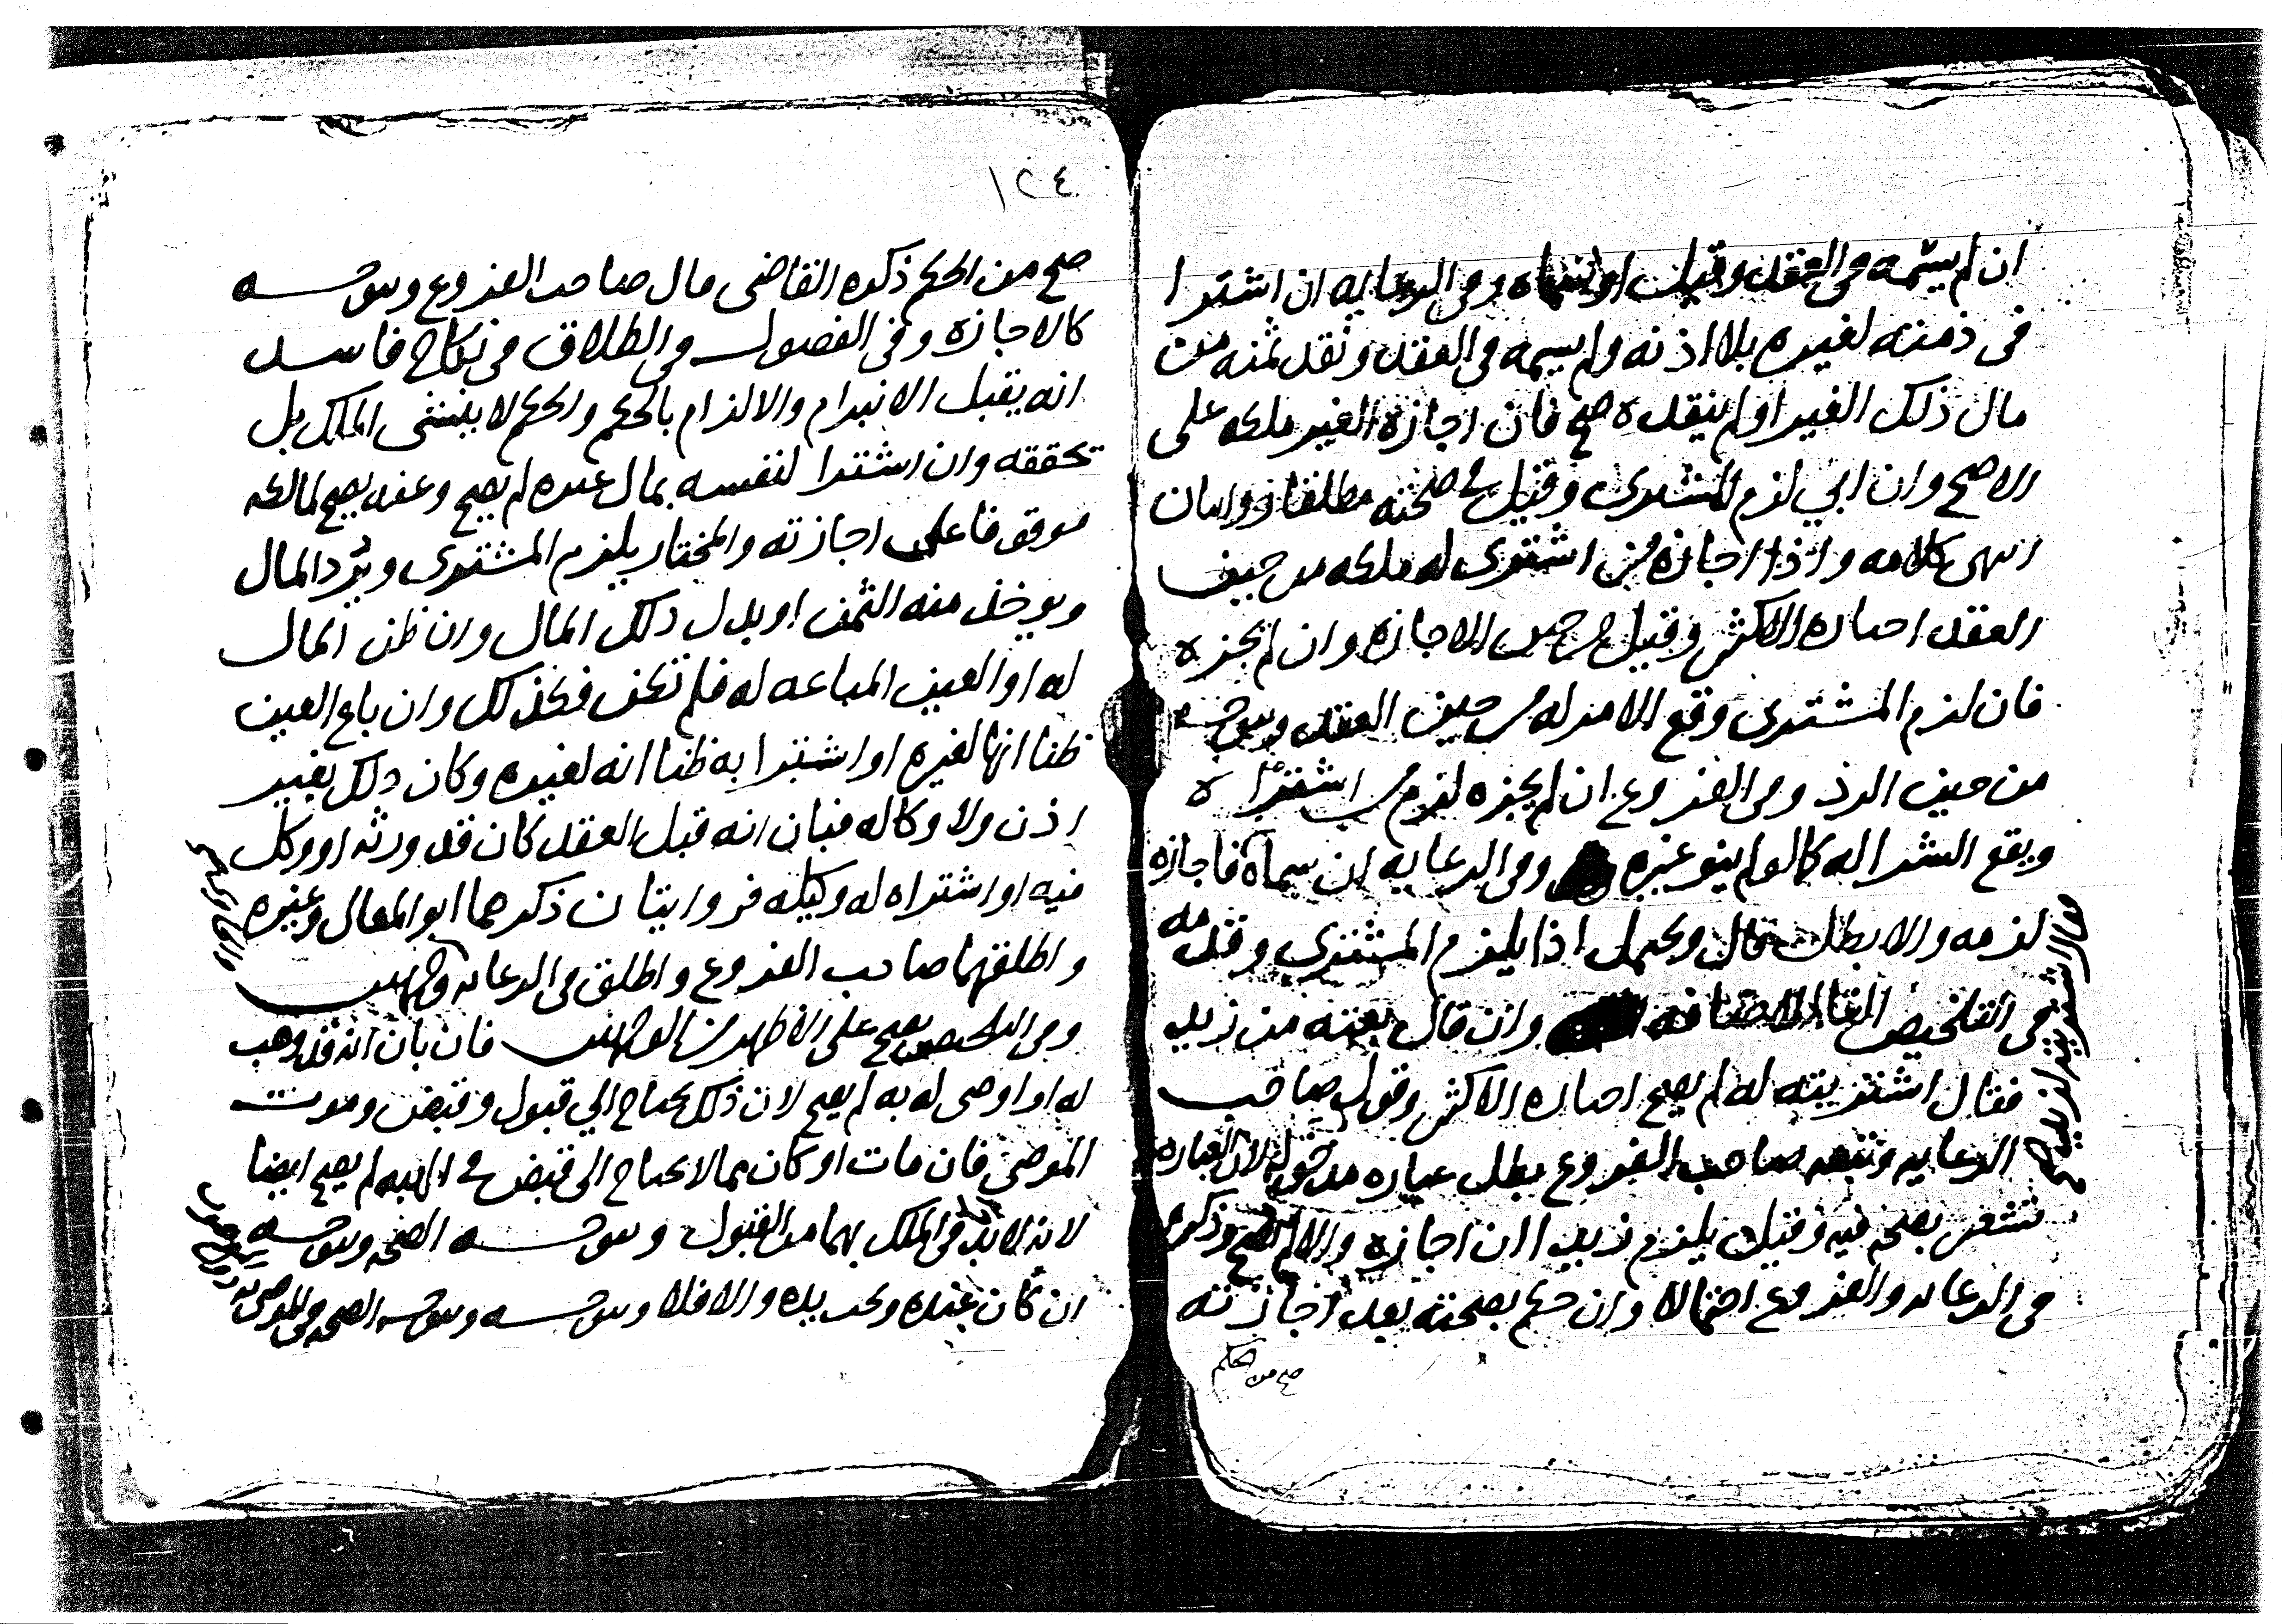 ان لم يسمه في العقد وقيل او سماه وفي الرعايه ان اشترا
في ذمته لغيره بلا اذنه ولم يسمه في العقد ونقد ثمنه من
مال ذلك الغير او لم ينقده صح فان اجازه الغير ملكه على
الاصح وان ابي لزم المشتري وقيل في صحته مطلقا روايتان
انتهى كلامه واذا اجازه من اشترى له ملكه من حين
العقد اختاره الاكثر وقيل من حين الاجازه وان لم يجزه
فان لزم المشترى وقع الامر له من حين العقد ويتوجه
من حين الرد وفي الفروع ان لم يجزه لزم من اشتراه
ويقع الشرا له كما لو لم ينو غيره وفي الرعايه ان سماه فاجازه
لزمه والا بطل قال ويحتمل اذا يلزم المشترى وقدمه
في التلخيص الغا للاضافه وان قال بعته من زيد
فقال اشتريته له لم يصح اختاره الاكثر وقول صاحب
الرعايه وتبعه صاحب الفروع بطل عباره مدخوله لان العباره
تشعر بصحته فيه وقيل يلزم زيدا ان اجازه والا لم يصح وذكره
في الرعايه والفروع احتمالا وان حكم بصحته بعد اجازته
صح من الحكم
١٢٤
صح من الحكم ذكره القاضى قال صاحب الفروع ويتوجه
كالاجازه وفي الفصول في الطلاق في نكاح فاسد
انه يقبل الانبرام والالزام بالحكم والحكم لا ينشى الملك بل
تحققه وان اشترا لنفسه بمال غيره لم يصح وعنه يصح لمالكه
موقوفا على اجازته والمختار يلزم المشترى ويرد المال
ويوخذ منه الثمن او بدل ذلك المال وان ظن المال
له او العين المباعه له فلم تكن فكذلك وان باع العين
ظنا انها لغيره او اشترا به ظنا انه لغيره وكان ذلك بغير
اذن ولا وكاله فبان انه قبل العقد كان قد ورثه او وكل
فيه او اشتراه له وكيله فروايتان ذكرهما ابو المعالي وغيره
واطلقهما صاحب الفروع واطلق في الرعايه وجهين
وفي التلخيص يصح على الاظهر من الوجهين فان بان انه قد وهب
له او اوصى له به لم يصح لان ذلك يحتاج الي قبول وقبض وموت
الموصى فان مات او كان مما لا يحتاج الى قبض في الهبه لم يصح ايضا
لانه لا بد في الملك بهما من القبول ويتوجه الصحه ويتوجه
ان كان عنده وتحت يده والا فلا ويتوجه ويتوجه الصحه في الموصى به